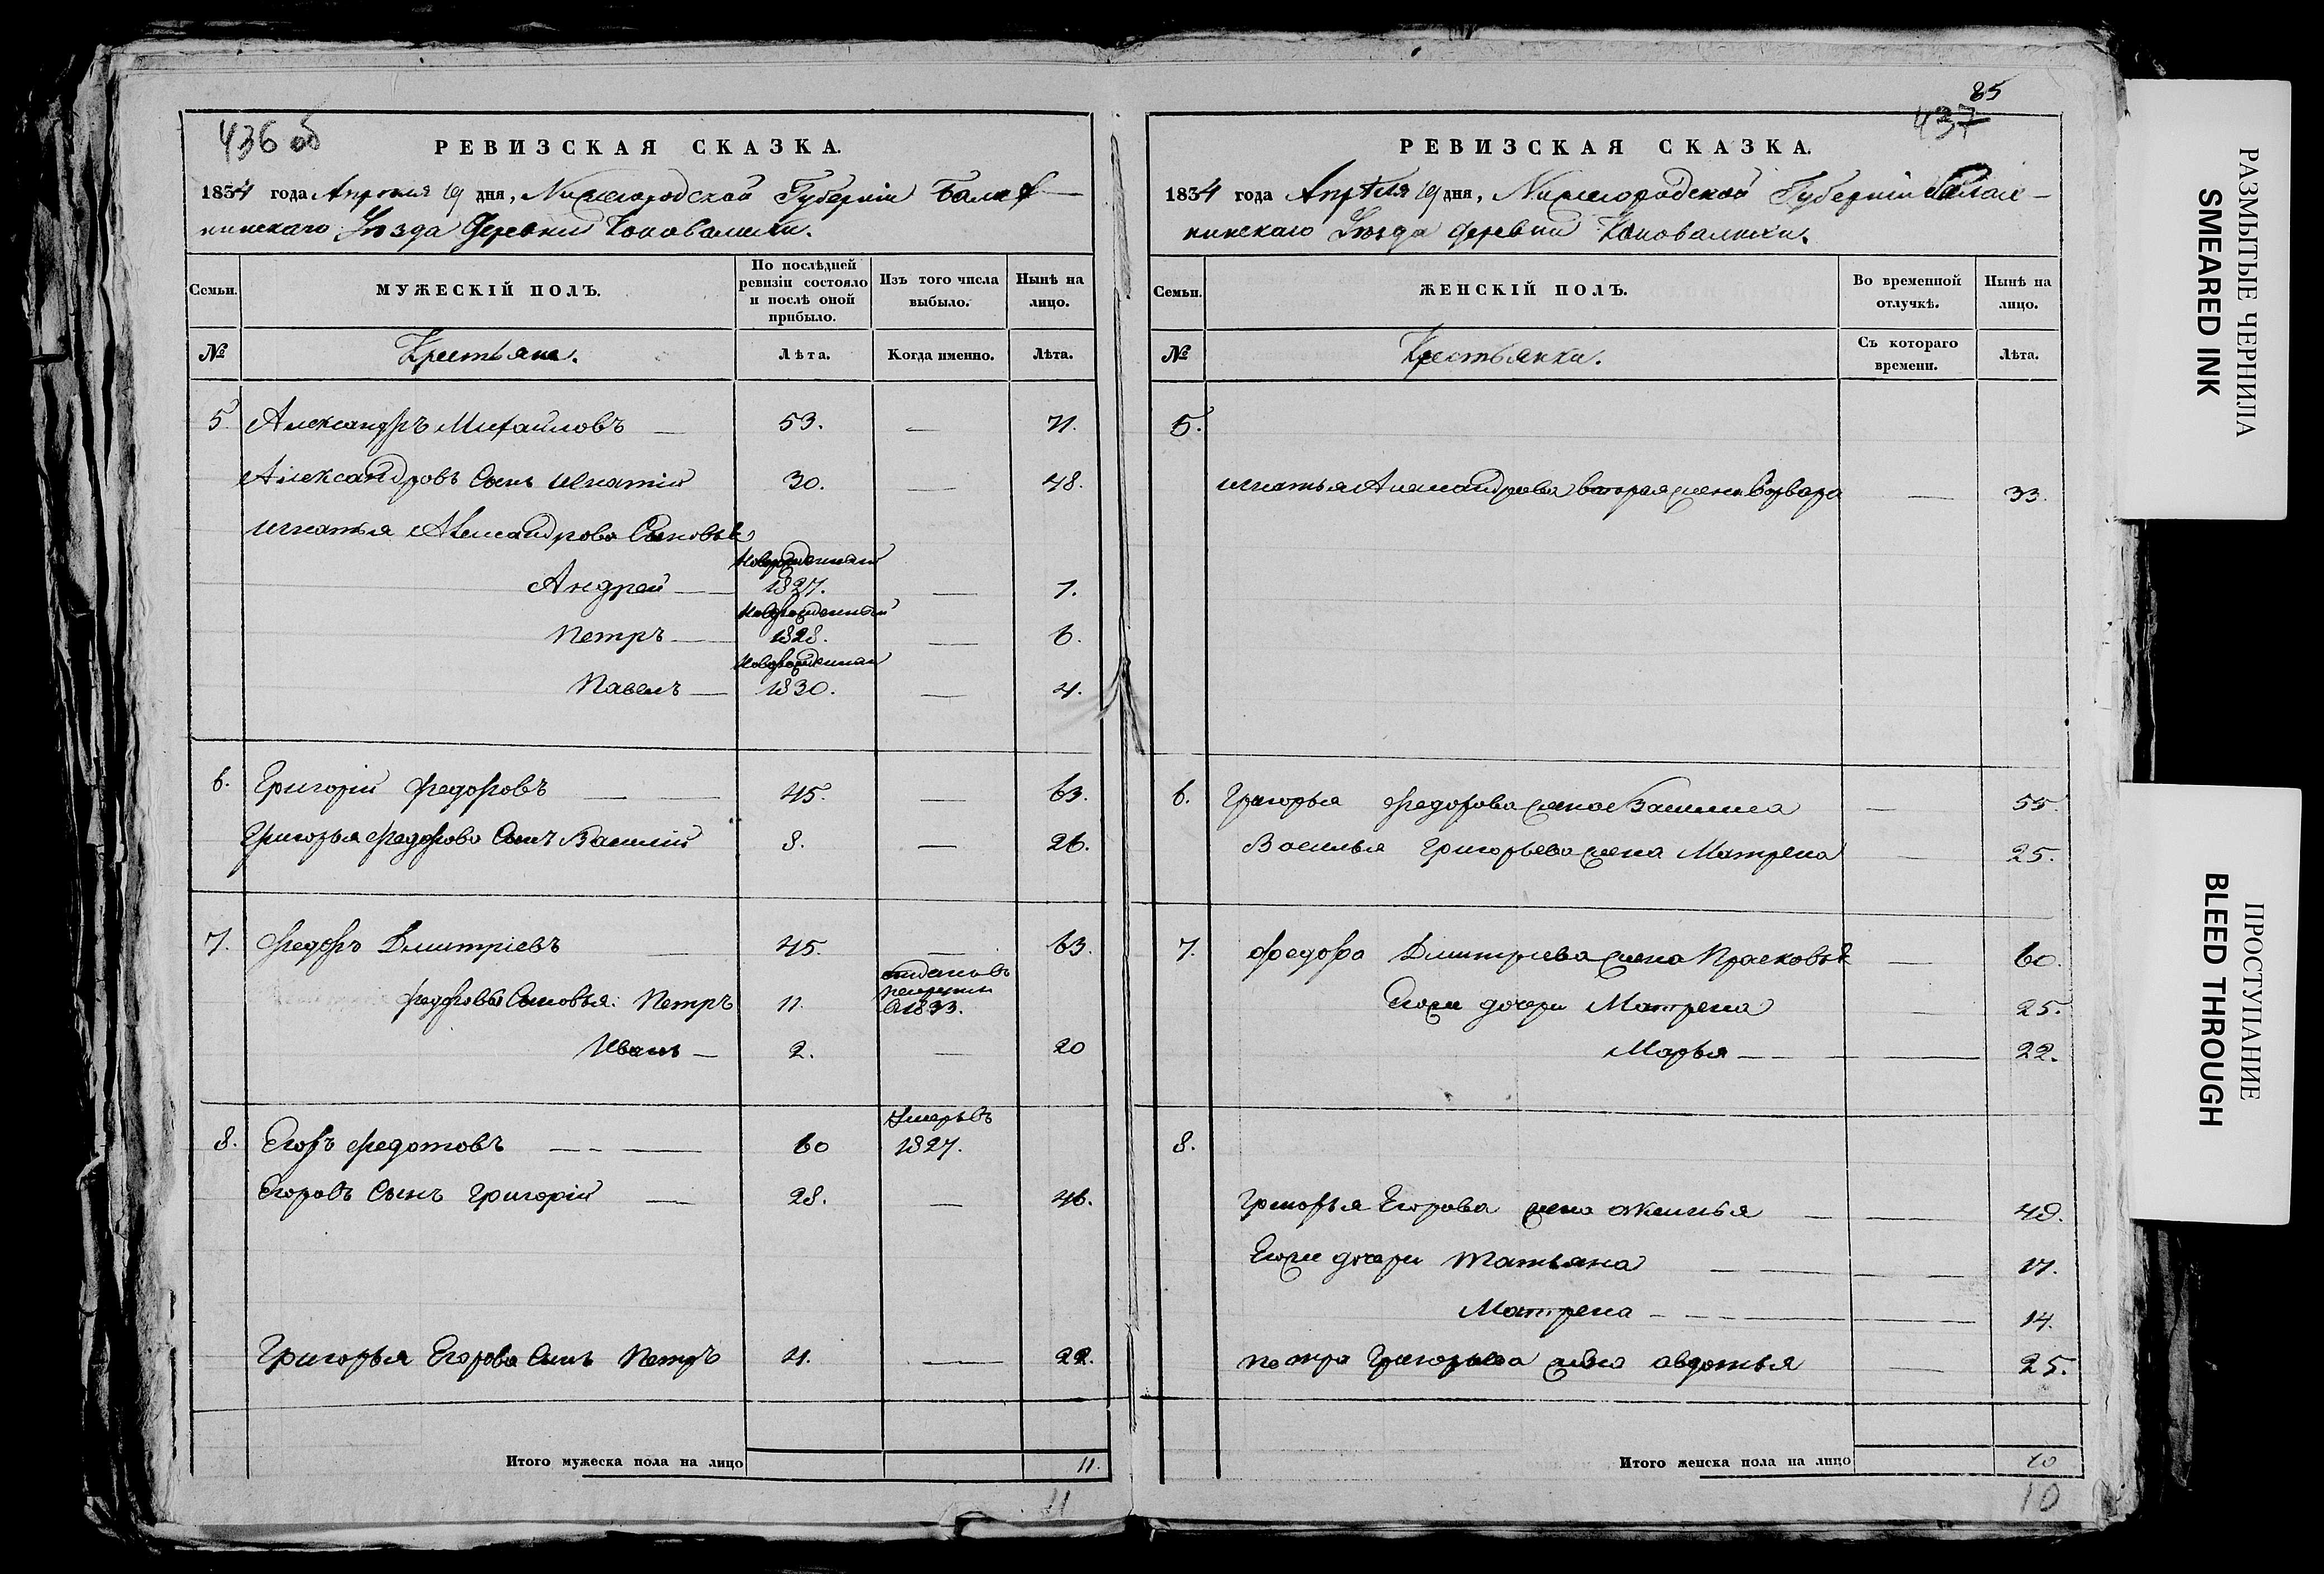 436 об
РЕВИЗСКАЯ СКАЗКА.
1834 года Апреля 19 дня, Нижегородской Губернии Балах-
нинскаго Уезда Деревни Коновалихи.
Семьи.
МУЖЕСКІЙ ПОЛЪ.
По послѣдней ревизіи состояло и послѣ оной прибыло.
Изъ того числа выбыло.
Нынѣ на лицо.
№ Крестьяне. Лѣта. Когда именно. Лѣта.
5. Александръ Михайловъ — 53. — 71.
Александровъ Сынъ Игнатій 30. — 48.
Игнатья Александрова Сыновья
Новорожденный
Андрей — 1827. — 7.
Новорожденный
Петръ — 1828. — 6.
Новорожденный
Павелъ — 1830. — 4.
6. Григорій Федоровъ — — 45. — 63.
Григорья Федорова Сынъ Василій 8. — 26.
7. Федоръ Дмитріевъ — 45. — 63.
отданъ въ
рекруты
Федоровы Сыновья: Петръ 11. в 1833.
Иванъ — 2. — 20
Умеръ въ
8. Егоръ Федотовъ — — — 60 1827.
Егоровъ Сынъ Григорій — 28. — 46.
Григорья Егорова Сынъ Петръ 4. — 22.
Итого мужеска пола на лицо 11.
11
85
437
РЕВИЗСКАЯ СКАЗКА.
1834 года Апрѣля 19 дня, Нижегородской Губерніи Балах-
нинскаго Уезда деревни Коновалихи.
Семьи.
ЖЕНСКІЙ ПОЛЪ.
Во временной отлучкѣ.
Нынѣ на лицо.
№ Крестьянки. Съ котораго времени. Лѣта.
5.
Игнатья Александрова вторая жена Варвара — 33.
6. Григорья Федорова жена Василиса — 55.
Василья Григорьева жена Матрена — 25.
7. Федора Дмитріева жена Прасковья — 60.
Егожъ дочери Матрена — 25.
Марья — — 22.
8.
Григорья Егорова жена Аксинья — — 49.
Егожъ дочери Татьяна — — — 17.
Матрена — — — 14.
Петра Григорьева жена Авдотья — 25.
Итого женска пола на лицо 10
10
РАЗМЫТЫЕ ЧЕРНИЛА
SMEARED INK
ПРОСТУПАНИЕ
BLEED THROUGH